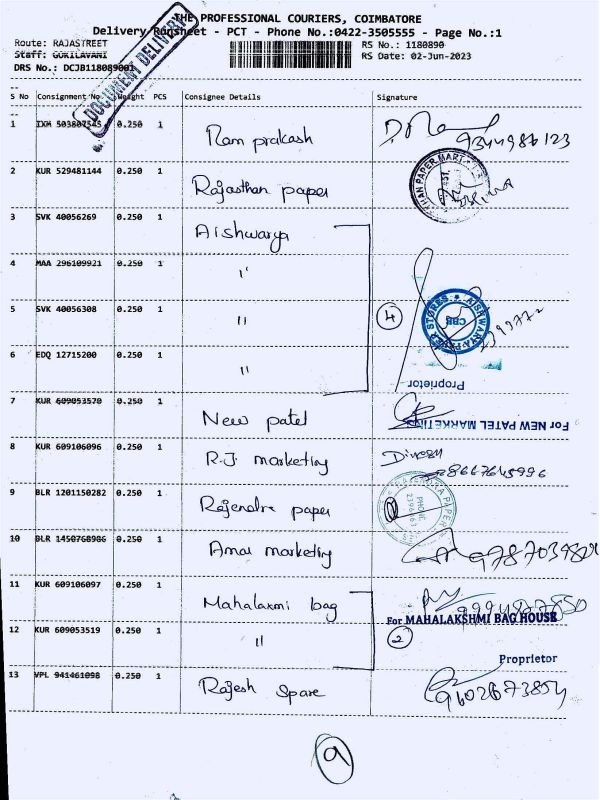 THE PROFESSIONAL COURIERS, COIMBATORE
Delivery Runsheet - PCT - Phone No.:0422-3505555 - Page No.:1
Route: RAJASTREET
RS No.: 1180890
Staff: GOKILAVANI
RS Date: 02-Jun-2023
DRS No.: DCJB118089001
DOCUMENT DELIVERY
S No Consignment No Weight PCS Consignee Details Signature
1 IXM 503807545 0.250 1 Ram prakash
2 KUR 529481144 0.250 1 Rajasthan paper
3 SVK 40056269 0.250 1 Aishwarya
4 MAA 296109921 0.250 1 "
5 SVK 40056308 0.250 1 " 4
6 EDQ 12715200 0.250 1 "
Proprietor
7 KUR 609053570 0.250 1 New patel For NEW PATEL MARKETING
8 KUR 609106096 0.250 1 R.J. marketing Dinesh
9 BLR 1201150282 0.250 1 Rajendra paper
10 BLR 1450768986 0.250 1 Amar marketing
11 KUR 609106097 0.250 1 Mahalaxmi bag
For MAHALAKSHMI BAG HOUSE
12 KUR 609053519 0.250 1 " 2
Proprietor
13 VPL 941461098 0.250 1 Rajesh Spare
9